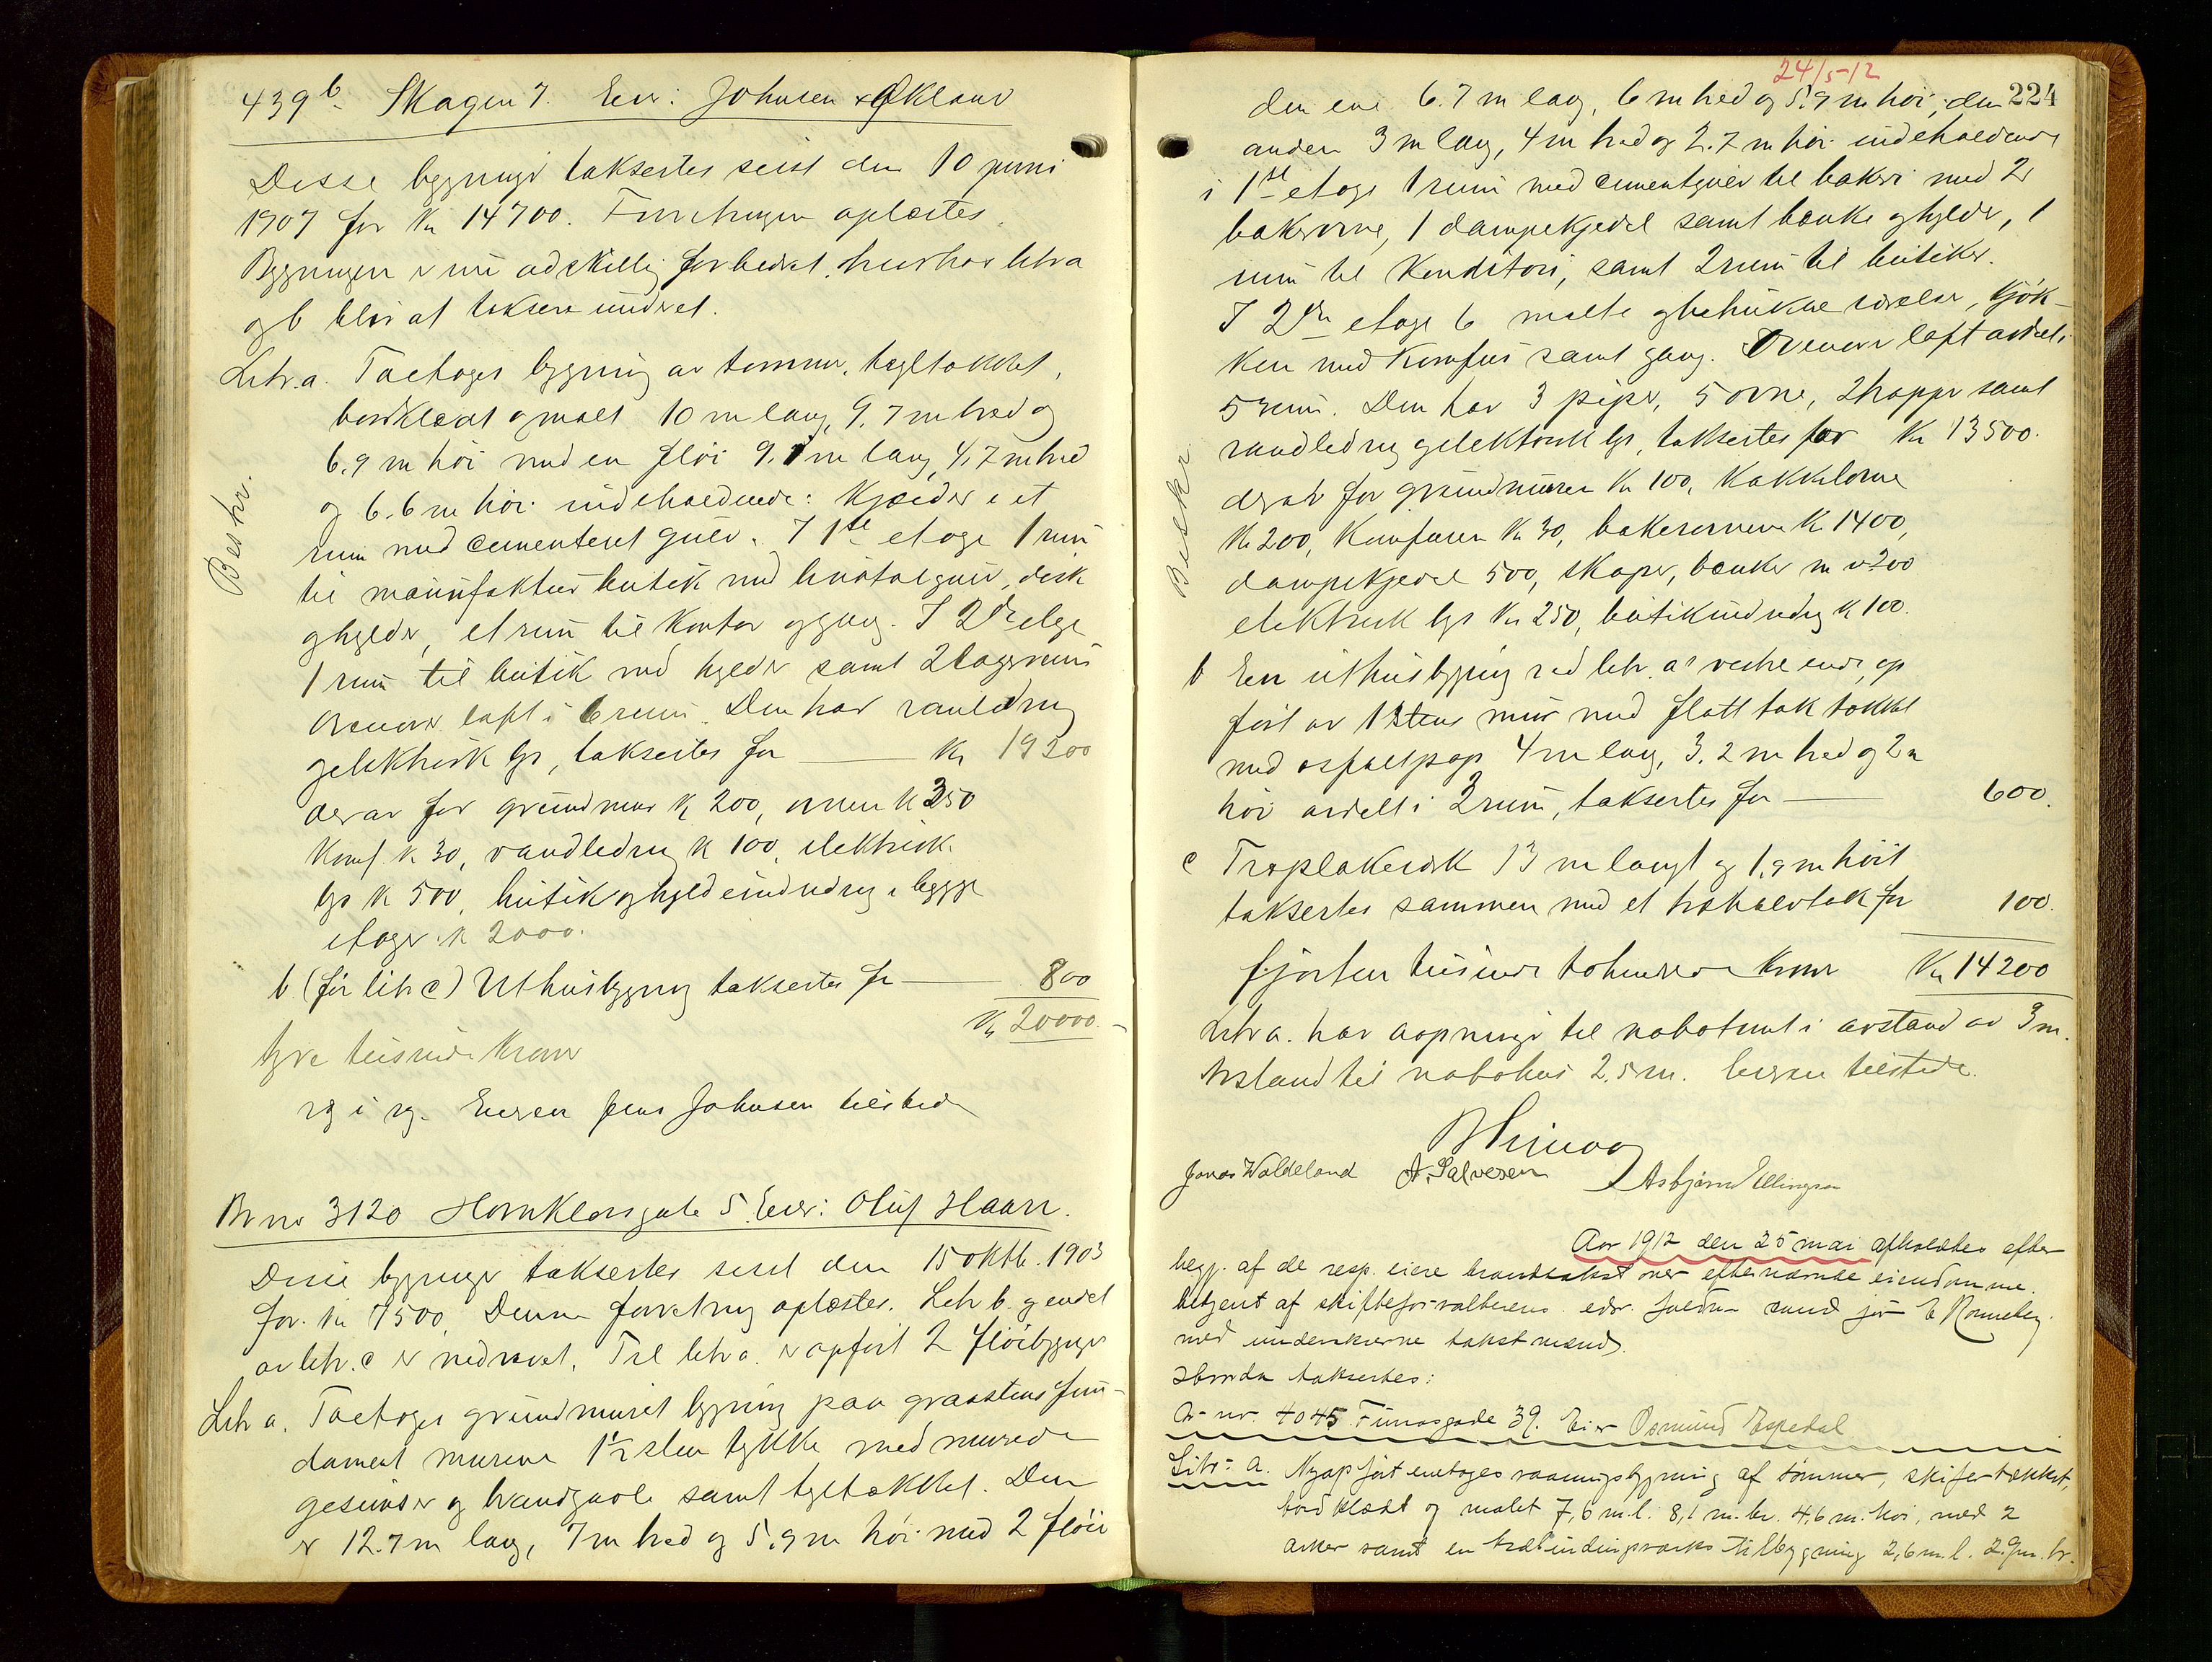 439b. Skagen 7. Eier: Johnsen & Økland
Disse bygninger takseertes sist den 10 juni
1907 for Kr 14700. Forretningen oplæstes.
Bygningen er nu adskillig forbedret, hvorhos litra
og b blir at taksere under et.
Litr. a. Toetages bygning av tømmer, tegltakket,
bordklædt og malt 10 m lang, 9.7 m bred og
6.9 m høi med en fløi 9.1 m lang, 4.7 m bred
og 6.6 m høi indeholdende: Kjælder i et
rum med cementeret gulv. I 1ste etage 1 rum
til manufaktur butik med linoleumgulv, disk
og hylder, et rum til kontor og gang. I 2den etage
1 rum til butik med hylder samt 2 lagerrum
Ovenover loft i 6 rum. Den har vandledning
og elektrisk lys, takseertes for Kr 19200
derav for grundmur Kr 200, ovnen K 350
Komf. K 30, vandledning K 100, elektrisk
lys K 500, butik og hyldeindredning i begge
etager K 2000.
b (før litr c) Uthusbygning taksertes for 800
Kr 20000.-
tyve tusinde Kroner
Eieren Jens Johnsen tilstede
Beskr.
Br no 3120 Hornklovsgate 5. Eier: Oluf Haarr.
Disse bygninger taksertes sist den 15 oktb. 1903
for Kr 7500. Denne forretning oplæstes. Litr b. og endel
av litr. c er nedrevet. Til litr a. er opført 2 fløibygninger
Litr a. Toetages grundmuret bygning paa graastens fun-
dament murene 1½ sten tykke med murede
gesimser og brandgavle samt tegltakket. Den
er 12.7 m lang, 7 m bred og 5.9 m høi med 2 fløie
24/5-12
224
den ene 6.7 m lang, 6 m bred og 5.9 m høi, den
anden 3 m lang, 4 m bred og 2.7 m høi indeholdende
i 1ste etage 1 rum med cementgulv til bakeri med 2
bakerovne, 1 dampkjedel samt bænke og hylder, 1
rum til Konditori, samt 2 rum til butiker.
I 2den etage 6 malte og betrukne værelser, kjøk-
ken med Komfur samt gang. Ovenover loft avdelt i
5 rum. Den har 3 piper, 5 ovne, 2 trapper samt
vandledning og elektrisk lys, taksertes for Kr 13500.
derav for grundmuren K 100, Kakkelovne
Kr 200, Komfuren K 30, bakerovnene K 1400,
dampkjedel 500, skaper, bænker m v 200
elektrisk lys Kr 250, butikindredng K 100.
Beskr.
b En uthusbygning ved litr. a's vestre ende, op
ført av 1 stens mur med flatt tak tækket
med asfaltpap 4 m lang, 3.2 m bred og 2 m
høi avdelt i 2 rum, taksertes for 600.
c Træplankeværk 13 m langt og 1.9 m høit
taksertes sammen med et træhalvtak for 100.
fjorten tusinde tohundrede Kroner Kr 14200
Litra a. har aapninger til nabotomt i avstand av 3 m.
Avstand til nabohus 2.5 m. Eieren tilstede.
Jonas Waldeland A. Salvesen Asbjørn Ellingsen
Aar 1912 den 25 mai afholdtes efter
begj. af de resp. eiere brandtakst over efternævnte eiendomme.
betjent af skifteforvalterens edsv. fuldm. cand jur E Rønneberg
med underskrevne takstmænd.
Hvorda taksertes:
Br nr. 4045 Funosgade 39. Eier Osmund Espedal
Litr: a. Nyopført enetages vaaningsbygning af tømmer, skifertækket,
bordklædt og malet 7,6 m. l. 8,1 m. br. 4,6 m. høi, med 2
arker samt en træbindingsværks tilbygning 2,6 m. l. 2.9 m. br.